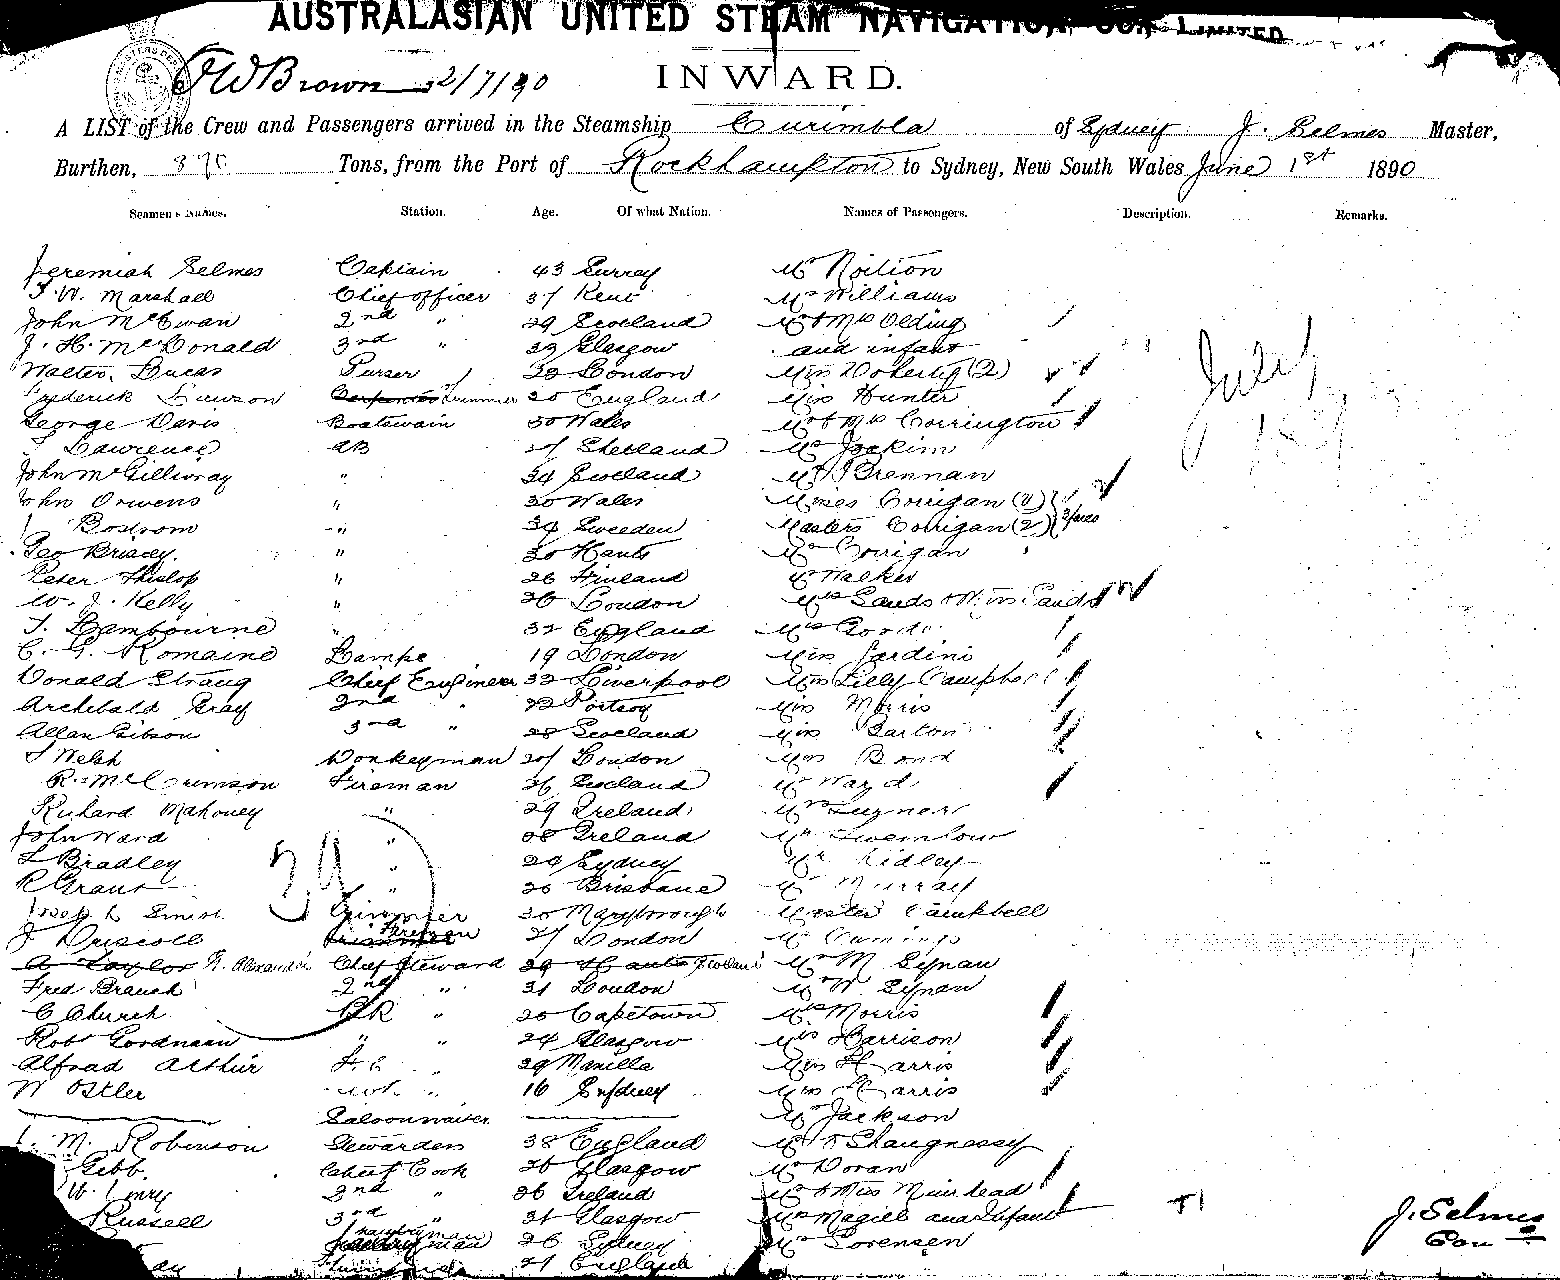 AUSTRALASIAN UNITED STEAM NAVIGATION COY. LIMITED
W Brown 2/7/90 INWARD.
A LIST of the Crew and Passengers arrived in the Steamship Curimbla of Sydney J. Selmes Master,
Burthen, 870 Tons, from the Port of Rockhampton to Sydney, New South Wales June 1st 1890
Seamen's Names. Station. Age. Of what Nation. Names of Passengers. Description. Remarks.
Jeremiah Selmes Captain 43 Surrey Mr Notion
W. Marshall Chief officer 37 Kent Williams
John McEwan 2nd " 29 Scotland Mr & Mrs Olding
J. H. McDonald 3rd " 33 Glasgow and infant
Walter Lucas Purser London Miss Doherty (2)
Frederick Lawson Trimmer 20 England Miss Hunter
July
George Davis Boatswain 50 Wales Mr & Mrs Corrington
Lawrence AB 27 Shetland Mr Joakim
John McGillivray " 34 Scotland Mr Brennan
John Orwens " 30 Wales Misses Corrigan (4)
Bostrom " 34 Sweeden Masters Corrigan (2)
Geo Briscey " 30 Hants Mr Corrigan
Peter " 26 Finland Mr Walker
W. J. Kelly " 26 London Mrs Sands & Miss Sands
Lambourne " 32 England
C. G. Romaine Lamps 19 London Miss Jardini
Donald Strang Chief Engineer 32 Liverpool Miss Lilly Campbell
Archibald Gray 2nd " 22 Portsoy Miss Morris
Allan Gibson 3rd " 28 Scotland Miss Barton
Welsh Donkeyman 27 London Bond
R. McCrimson Fireman 26 Scotland Mr Ward
Richard Mahoney " 29 Ireland
John Ward " 38 Ireland Mr Twemlow
Bradley " 29 Sydney Mr Ridley
R Grant " 26 Brisbane Mr Murray
Trimmer 20 Maryborough Master Campbell
J Driscoll Fireman 27 London Mr Cumings
A Taylor Alexander Chief Steward 29 Hants Scotland Mr M Synan
Fred Branch 2nd " 31 London Mr W Synan
C Church " 20 Capetown Morris
Robt " 24 Glasgow Harrison
Alfrad Arthur " 29 Manilla Miss Harris
W Ostler " 16 Sydney Miss Harris
Saloonwaiter Mr Jackson
M. Robinson Stewardess 38 England Mr O Shaugnessy
Gebb. Chief Cook 26 Glasgow Mr Doran
W. Henry 2nd " 26 Ireland Mr & Miss Muirhead
Russell 3rd " 31 Glasgow Mrs Magill and Infant
Pantryman 26 Sydney Mr Sorensen
21 England
J. Selmes